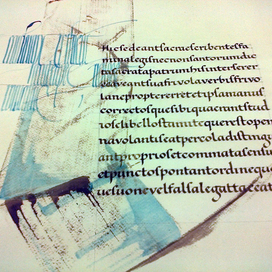 Hicsedeantsacraescribentesfa
minalegisnecnonsanctorumdic
tasacratapatrumhisinterserer
ecaveantsuafrivolaverbisfrivo
lanecproptererretetipsamanus
correctosquesibiquaerantstud
ioselibellostramitequorectopen
navolantiseatpercoladistingu
antpropriosetcommatasensus
etpunctosponantordinequosq
uesuonevelfalsalegattaceat